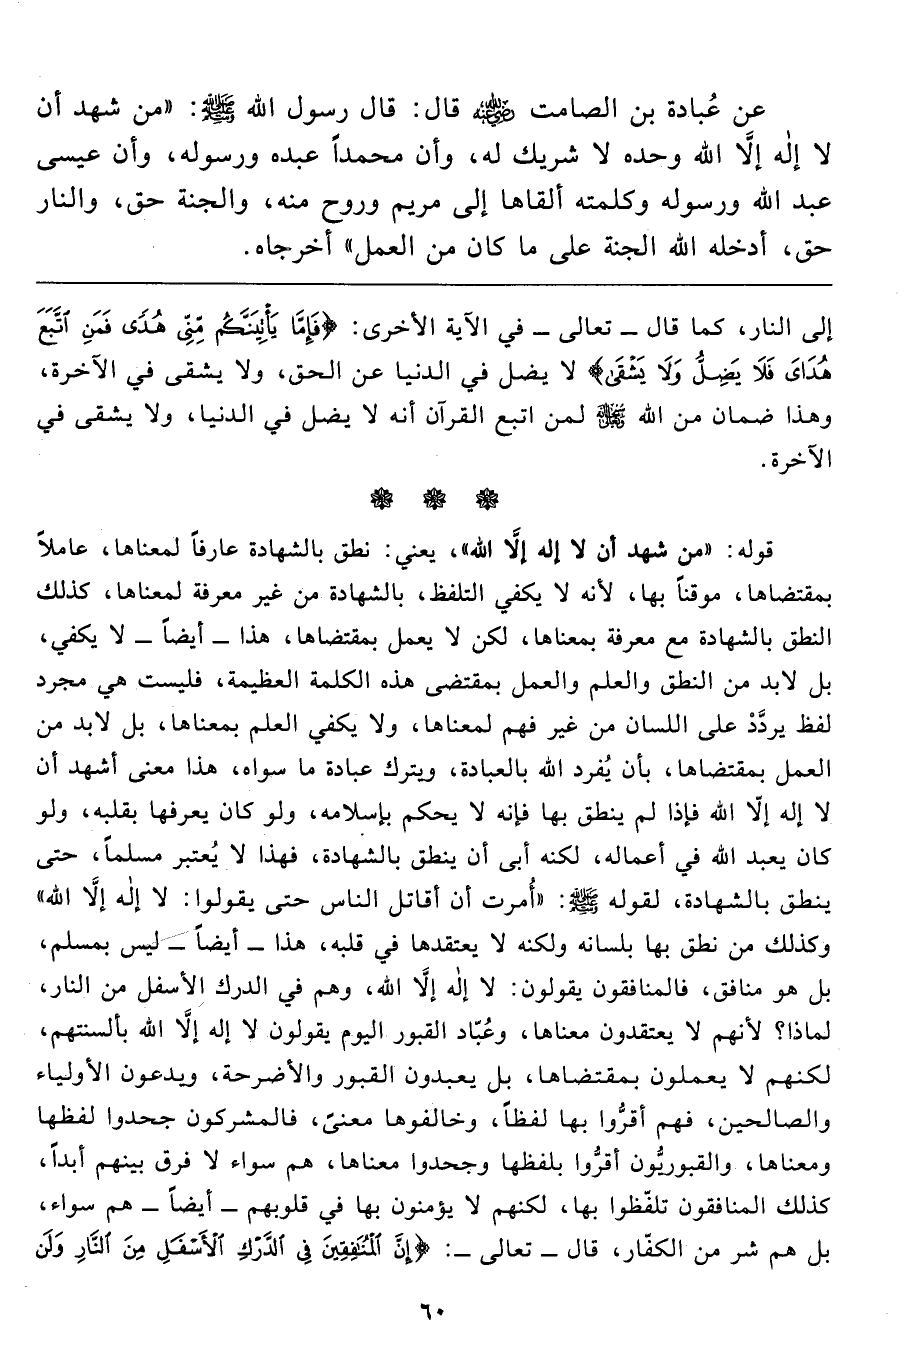 عن عُبادة بن الصامت رضي الله عنه قال: قال رسول الله ﷺ: «من شهد أن
لا إلٰه إلَّا الله وحده لا شريك له، وأن محمداً عبده ورسوله، وأن عيسى
عبد الله ورسوله وكلمته ألقاها إلى مريم وروح منه، والجنة حق، والنار
حق، أدخله الله الجنة على ما كان من العمل» أخرجاه.
إلى النار، كما قال ـ تعالى ـ في الآية الأخرى: ﴿فَإِمَّا يَأْتِيَنَّكُم مِّنِّي هُدًى فَمَنِ ٱتَّبَعَ
هُدَايَ فَلَا يَضِلُّ وَلَا يَشْقَىٰ﴾ لا يضل في الدنيا عن الحق، ولا يشقى في الآخرة،
وهذا ضمان من الله ﷻ لمن اتبع القرآن أنه لا يضل في الدنيا، ولا يشقى في
الآخرة.
❁ ❁ ❁
قوله: «من شهد أن لا إله إلَّا الله»، يعني: نطق بالشهادة عارفاً لمعناها، عاملاً
بمقتضاها، موقناً بها، لأنه لا يكفي التلفظ، بالشهادة من غير معرفة لمعناها، كذلك
النطق بالشهادة مع معرفة بمعناها، لكن لا يعمل بمقتضاها، هذا ـ أيضاً ـ لا يكفي،
بل لابد من النطق والعلم والعمل بمقتضى هذه الكلمة العظيمة، فليست هي مجرد
لفظ يردَّدْ على اللسان من غير فهم لمعناها، ولا يكفي العلم بمعناها، بل لابد من
العمل بمقتضاها، بأن يُفرد الله بالعبادة، ويترك عبادة ما سواه، هذا معنى أشهد أن
لا إله إلّا الله فإذا لم ينطق بها فإنه لا يحكم بإسلامه، ولو كان يعرفها بقلبه، ولو
كان يعبد الله في أعماله، لكنه أبى أن ينطق بالشهادة، فهذا لا يُعتبر مسلماً، حتى
ينطق بالشهادة، لقوله ﷺ: «أُمرت أن أقاتل الناس حتى يقولوا: لا إلٰه إلَّا الله»
وكذلك من نطق بها بلسانه ولكنه لا يعتقدها في قلبه، هذا ـ أيضاً ـ ليس بمسلم،
بل هو منافق، فالمنافقون يقولون: لا إلٰه إلَّا الله، وهم في الدرك الأسفل من النار،
لماذا؟ لأنهم لا يعتقدون معناها، وعُبّاد القبور اليوم يقولون لا إله إلَّا الله بألسنتهم،
لكنهم لا يعملون بمقتضاها، بل يعبدون القبور والأضرحة، ويدعون الأولياء
والصالحين، فهم أقرُّوا بها لفظاً، وخالفوها معنىً، فالمشركون جحدوا لفظها
ومعناها، والقبوريُّون أقرُّوا بلفظها وجحدوا معناها، هم سواء لا فرق بينهم أبداً،
كذلك المنافقون تلفّظوا بها، لكنهم لا يؤمنون بها في قلوبهم ـ أيضاً ـ هم سواء،
بل هم شر من الكفّار، قال ـ تعالى ـ: ﴿إِنَّ ٱلْمُنَٰفِقِينَ فِي ٱلدَّرْكِ ٱلْأَسْفَلِ مِنَ ٱلنَّارِ وَلَن
٦٠